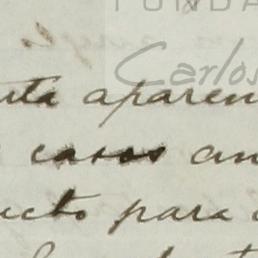 FUNDA
Carlos
uta aparen
casos an
ucto para